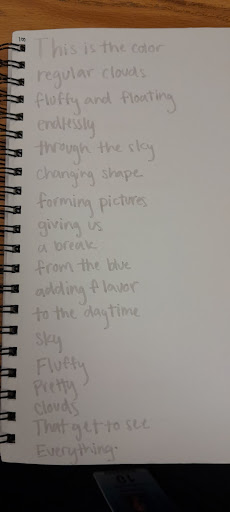 This is the color
regular clouds
fluffy and floating
endlessly
through the sky
changing shape
forming pictures
giving us
a break
from the blue
adding flavor
to the daytime
sky
Fluffy
Pretty
clouds
That get to see
Everything.